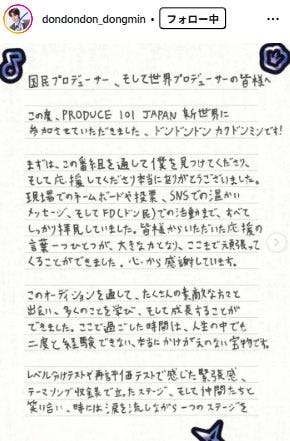 dondondon_dongmin
フォロー中
国民プロデューサー、そして世界プロデューサーの皆様へ
この度、PRODUCE 101 JAPAN 新世界に
参加させていただきました、ドンドンドン カクドンミンです!
まずは、この番組を通して僕を見つけてくださり、
そして応援してくださり本当にありがとうございました。
現場でのネームボードや投票、SNSでの温かい
メッセージ、そしてFD(ドン民)での活動まで、すべて
しっかり拝見していました。皆様からいただいた応援の
言葉一つひとつが、大きな力となり、ここまで頑張って
くることができました。心から感謝しています。
このオーディションを通して、たくさんの素敵な方々と
出会い、多くのことを学び、そして成長することが
できました。ここで過ごした時間は、人生の中でも
二度と経験できない、本当にかけがえのない宝物です。
レベル分けテストや再評価テストで感じた緊張感、
テーマソング収録で出たステージ、そして仲間たちと
笑い合い、時には涙を流しながら一つのステージを